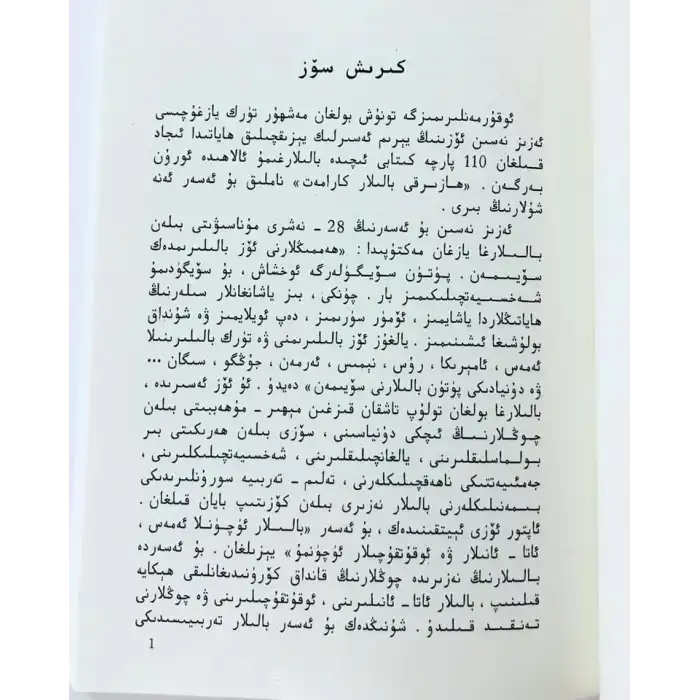 كىرىش سۆز
ئوقۇرمەنلىرىمىزگە تونۇش بولغان مەشھۇر تۈرك يازغۇچىسى
ئەزىز نەسىن ئۆزىنىڭ يېرىم ئەسىرلىك يېزىقچىلىق ھاياتىدا ئىجاد
قىلغان 110 پارچە كىتابى ئىچىدە بالىلارغىمۇ ئالاھىدە ئورۇن
بەرگەن . «ھازىرقى بالىلار كارامەت» ناملىق بۇ ئەسەر ئەنە
شۇلارنىڭ بىرى .
ئەزىز نەسىن بۇ ئەسەرنىڭ 28 ـ نەشرى مۇناسىۋىتى بىلەن
بالىلارغا يازغان مەكتۇپىدا : «ھەممىڭلارنى ئۆز بالىلىرىمدەك
سۆيىمەن . پۈتۈن سۆيگۈلەرگە ئوخشاش ، بۇ سۆيگۈدىمۇ
شەخسىيەتچىلىكىمىز بار . چۈنكى ، بىز ياشانغانلار سىلەرنىڭ
ھاياتىڭلاردا ياشايمىز ، ئۆمۈر سۈرىمىز ، دەپ ئويلايمىز ۋە شۇنداق
بولۇشىغا ئىشىنىمىز . يالغۇز ئۆز بالىلىرىمنى ۋە تۈرك بالىلىرىنىلا
ئەمەس ، ئامېرىكا ، رۇس ، نېمىس ، ئەرمەن ، جۇڭگو ، سىگان ...
ۋە دۇنيادىكى پۈتۈن بالىلارنى سۆيىمەن» دەيدۇ . ئۇ ئۆز ئەسىرىدە ،
بالىلارغا بولغان تولۇپ تاشقان قىزغىن مېھىر ـ مۇھەببىتى بىلەن
چوڭلارنىڭ ئىچكى دۇنياسىنى ، سۆزى بىلەن ھەرىكىتى بىر
بولماسلىقلىرىنى ، يالغانچىلىقلىرىنى ، شەخسىيەتچىلىكلىرىنى ،
جەمئىيەتتىكى ناھەقچىلىكلەرنى ، تەلىم ـ تەربىيە سورۇنلىرىدىكى
بىمەنىلىكلەرنى بالىلار نەزىرى بىلەن كۆزىتىپ بايان قىلغان .
ئاپتور ئۆزى ئېيتقىنىدەك ، بۇ ئەسەر «بالىلار ئۈچۈنلا ئەمەس ،
ئاتا ـ ئانىلار ۋە ئوقۇتقۇچىلار ئۈچۈنمۇ» يېزىلغان . بۇ ئەسەردە
بالىلارنىڭ نەزىرىدە چوڭلارنىڭ قانداق كۆرۈنىدىغانلىقى ھېكايە
قىلىنىپ ، بالىلار ئاتا ـ ئانىلىرىنى ، ئوقۇتقۇچىلىرىنى ۋە چوڭلارنى
تەنقىد قىلىدۇ . شۇنىڭدەك بۇ ئەسەر بالىلار تەربىيىسىدىكى
1